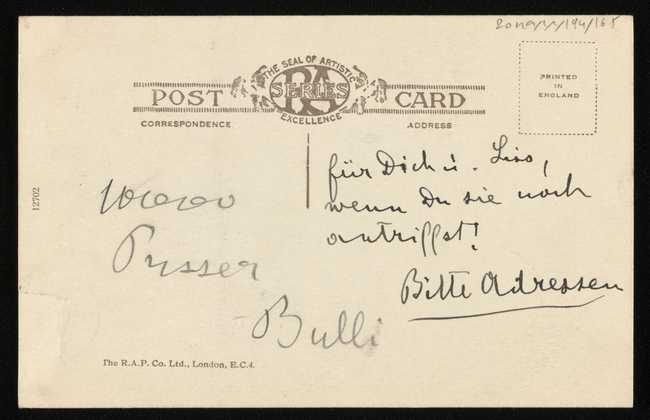 THE SEAL OF ARTISTIC
POST RA SERIES CARD
EXCELLENCE
CORRESPONDENCE
ADDRESS
PRINTED
IN
ENGLAND
12702
für Dich u. Liso,
wenn Du sie noch
antriffst!
Bitte Adressen
Busser
Bulli
The R.A.P. Co. Ltd., London, E.C.4.